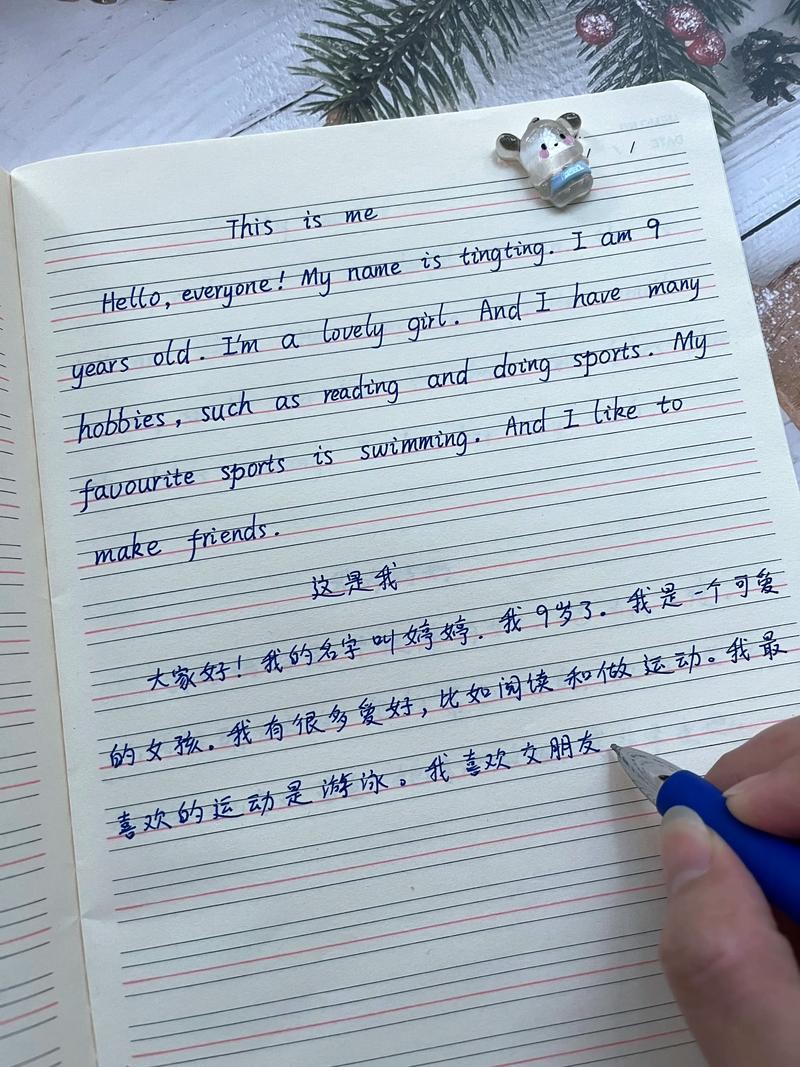 This is me
Hello, everyone! My name is tingting. I am 9
years old. I'm a lovely girl. And I have many
hobbies, such as reading and doing sports. My
favourite sports is swimming. And I like to
make friends.
这是我
大家好！我的名字叫婷婷. 我9岁了。我是一个可爱
的女孩. 我有很多爱好, 比如阅读和做运动。我最
喜欢的运动是游泳。我喜欢交朋友